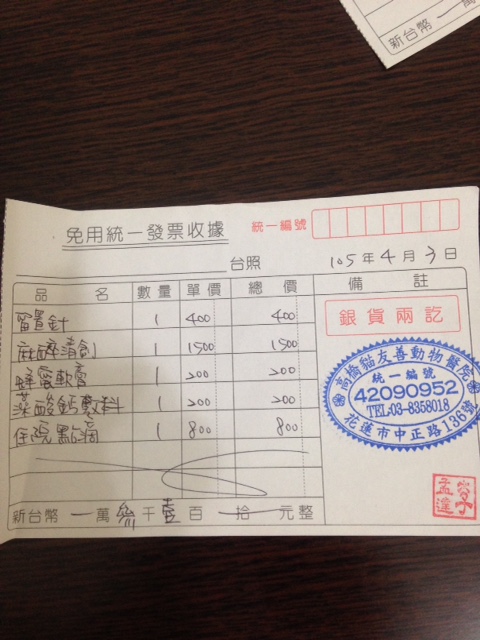 新台幣 一 萬
免用統一發票收據
統一編號
台照
105年4月3日
品名 數量 單價 總價 備註
留置針 1 400 400
麻醉清創 1 1500 1500
蜂蜜軟膏 1 200 200
藻酸鈣敷料 1 200 200
住院點滴 1 800 800
新台幣 一 萬 參 千 壹 百 一 拾 一 元整
銀貨兩訖
高橋貓友善動物醫院
統一編號
42090952
TEL:03-8358018
花蓮市中正路136號